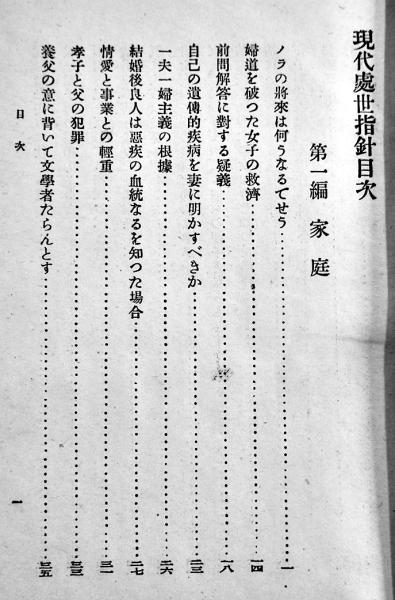 現代處世指針目次
第一編 家庭
ノラの將來は何うなるでせう……一
婦道を破つた女子の救濟……一四
前問解答に對する疑義……一八
自己の遺傳的疾病を妻に明かすべきか……二三
一夫一婦主義の根據……二六
結婚後良人は惡疾の血統なるを知つた場合……二七
情愛と事業との輕重……三一
孝子と父の犯罪……三三
養父の意に背いて文學者たらんとす……三五
目次
一